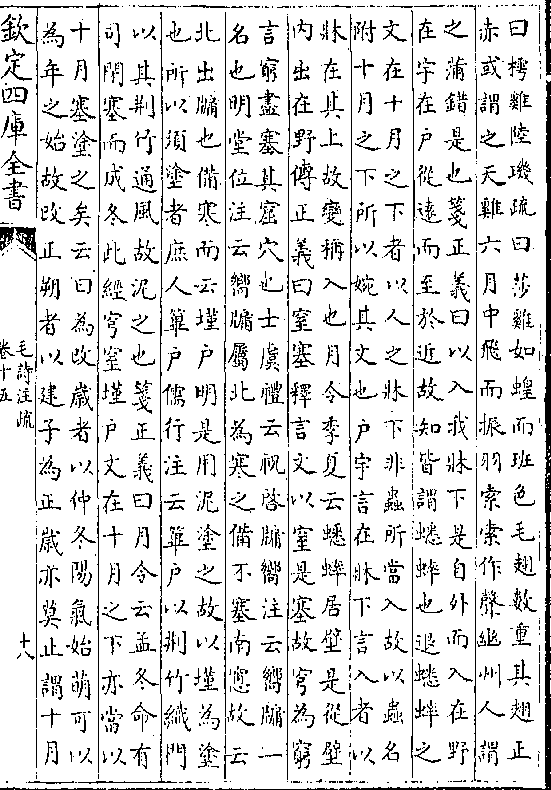 曰樗雞陸璣疏曰莎雞如蝗而班色毛翅數重其翅正
赤或謂之天雞六月中飛而振羽索索作聲幽州人謂
之蒲錯是也箋正義曰以入我牀下是自外而入在野
在宇在戶從遠而至於近故知皆謂蟋蟀也退蟋蟀之
文在十月之下者以人之牀下非蟲所當入故以蟲名
附十月之下所以婉其文也戶宇言在牀下言入者以
牀在其上故變稱入也月令季夏云蟋蟀居壁是從壁
內出在野傳正義曰窒塞釋言文以窒是塞故穹為窮
言窮盡塞其窟穴也士虞禮云祝啓牖嚮注云嚮牖一
名也明堂位注云嚮牖屬北為寒之備不塞南窻故云
北出牖也備寒而云墐戶明是用泥塗之故以墐為塗
也所以須塗者庶人篳戶儒行注云篳戶以荆竹織門
以其荆竹通風故泥之也箋正義曰月令云孟冬命有
司閉塞而成冬此經穹窒墐戶文在十月之下亦當以
十月塞塗之矣云曰為改歲者以仲冬陽氣始萌可以
為年之始故改正朔者以建子為正歲亦莫止謂十月
欽定四庫全書
毛詩注疏
卷十五
十八